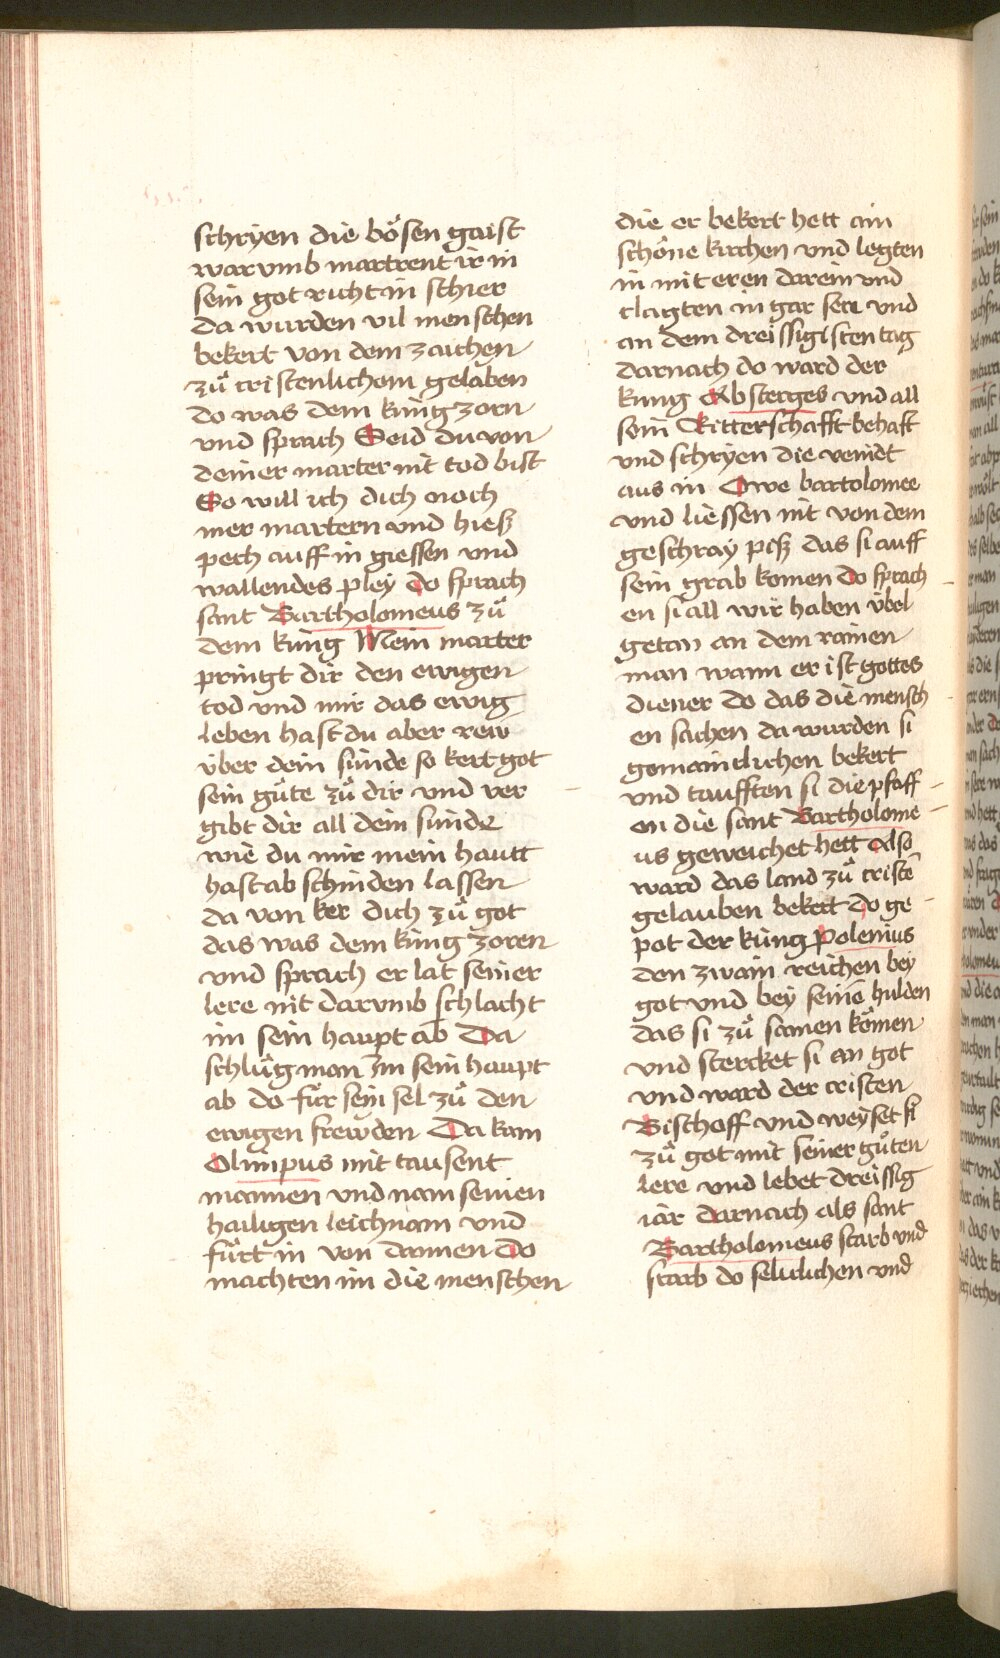 schryen die bösen gaist
warumb martrent ir in
sein got richt in schier
da wurden vil menschen
bekert von dem zaichen
zů cristenlichem gelaben
do was dem kung zorn
vnd sprach Seid du von
deiner marter nit tod bist
So will ich dich noch
mer martern vnd hiesz
pech auff in giessen vnd
wallendes pley do sprach
sant Bartholomeus zů
dem kung Mein marter
pringt dir den ewigen
tod vnd mir das ewig
leben hast du aber rew
über dein sünde so kert got
sein güte zů dir vnd ver
gibt dir all dein sünde
wie du mir mein hautt
hast ab schinden lassen
da von ker dich zů got
das was dem kung zoren
vnd sprach er lat seiner
lere nit darumb schlacht
im sein haupt ab Da
schlůg man Im sein haupt
ab do für sein sel zů den
ewigen frewden Da kam
Olimpus mit tausent
mannen vnd nam seinen
hailigen leichnam vnd
fürt in von dannen Do
machten im die menschen
die er bekert hett ain
schöne kirchen vnd legten
in mit eren darein vnd
clagten in gar sere vnd
an dem dreissigisten tag
darnach do ward der
kung Absterges vnd all
sein Ritterschafft behaft
vnd schryen die veindt
aus in Owe bartolomee
vnd liessen nit von dem
geschray pisz das si auff
sein grab komen Do sprach
en si all wir haben übel
getan an dem rainen
man wann er ist gottes
diener do das die mensch
en sachen da wurden si
gemaintlichen bekert
vnd taufften si die pfaff
en die sant Bartholome
us geweichet hett Also
ward das land zů cristē
gelauben bekert Do ge
pot der küng Polenius
den zwain reichen bey
got vnd bey seinē hulden
das si zů samen kömen
vnd stercket si an got
vnd ward der cristen
Bischoff vnd weyset si
zů got mit seiner gůten
lere vnd lebet dreissig
iar darnach als sant
Bartholomeus starb vnd
starb do seliclichen vnd